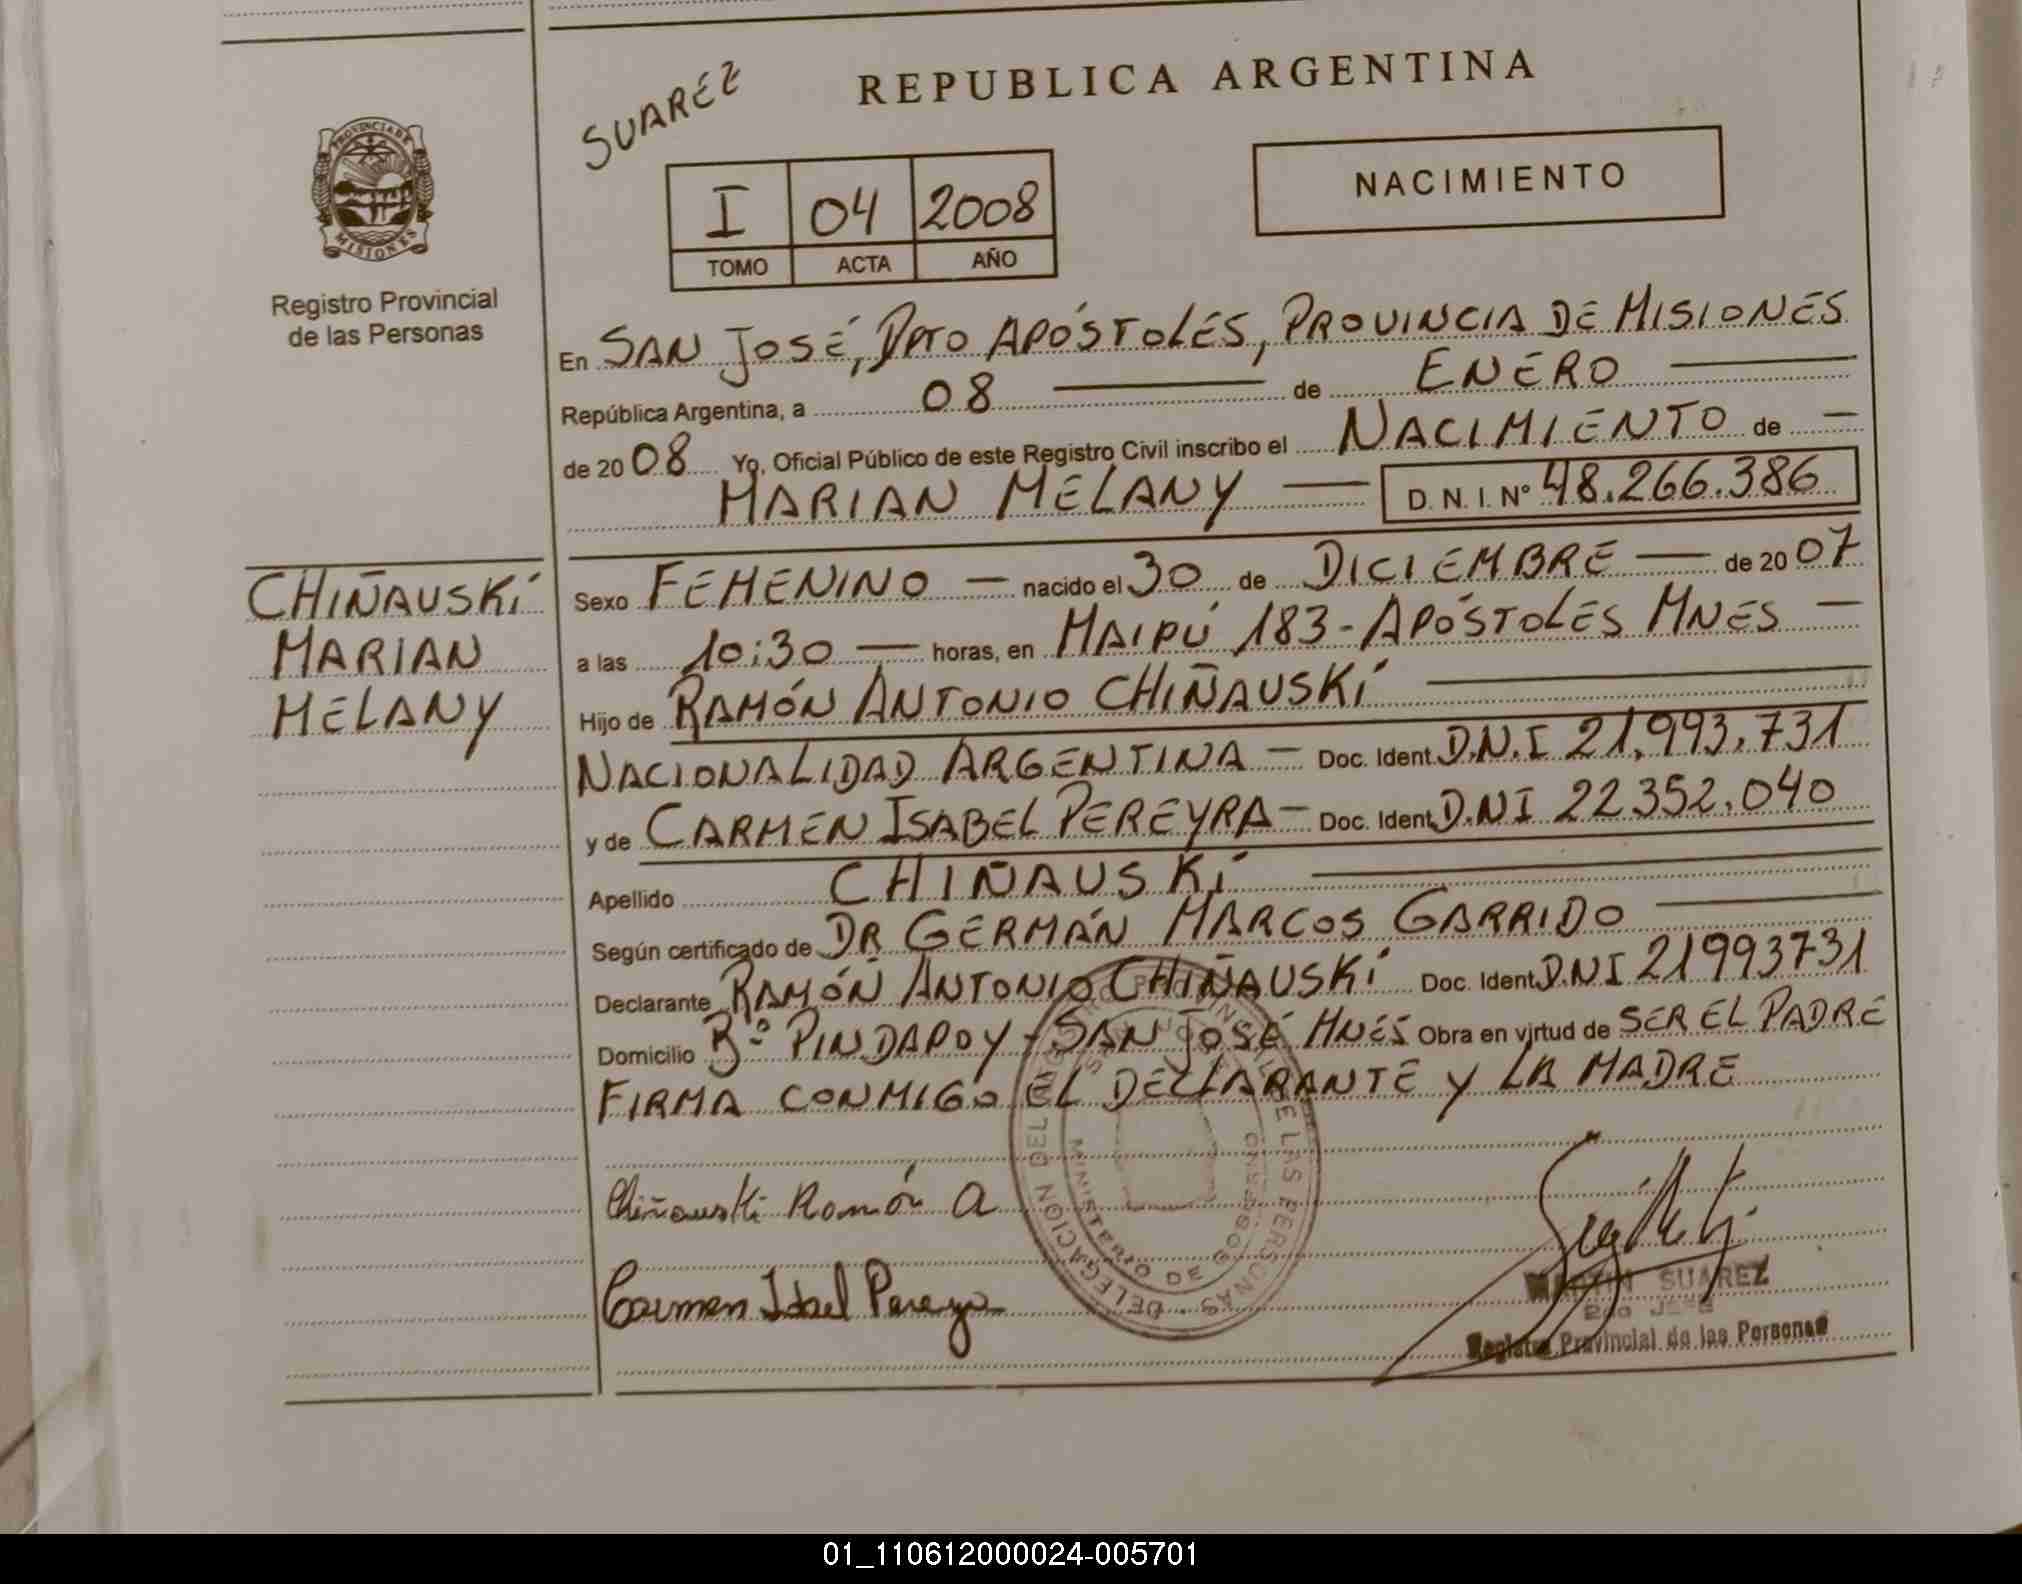 REPUBLICA ARGENTINA
SUAREZ
NACIMIENTO
I 04 2008
TOMO ACTA AÑO
PROVINCIA DE
MISIONES
Registro Provincial
de las Personas
En SAN JOSÉ, DPTO APÓSTOLES, PROVINCIA DE MISIONES
República Argentina, a 08 — de ENERO —
de 2008 Yo, Oficial Público de este Registro Civil inscribo el NACIMIENTO de —
MARIAN MELANY — D.N.I. Nº 48.266.386
CHIÑAUSKI
MARIAN
MELANY
Sexo FEMENINO — nacido el 30 de DICIEMBRE — de 2007
a las 10:30 — horas, en MAIPÚ 183 - APÓSTOLES MNES —
Hijo de RAMÓN ANTONIO CHIÑAUSKI —
NACIONALIDAD ARGENTINA — Doc. Ident. D.N.I 21.993.731
y de CARMEN ISABEL PEREYRA — Doc. Ident. D.NI 22352.040
Apellido CHIÑAUSKI —
Según certificado de DR GERMÁN MARCOS GARRIDO —
Declarante RAMÓN ANTONIO CHIÑAUSKI Doc. Ident. D.NI 21993731
Domicilio Bº PINDAPOY - SAN JOSÉ MNES Obra en virtud de SER EL PADRE
FIRMA CONMIGO EL DECLARANTE Y LA MADRE
Chiñauski Ramón A
Carmen Isabel Pereyra
DELEGACION DEL DE LAS PERSONAS
MINISTERIO DE GOBIERNO
MARTIN SUAREZ
2do JEFE
Registro Provincial de las Personas
01_110612000024-005701